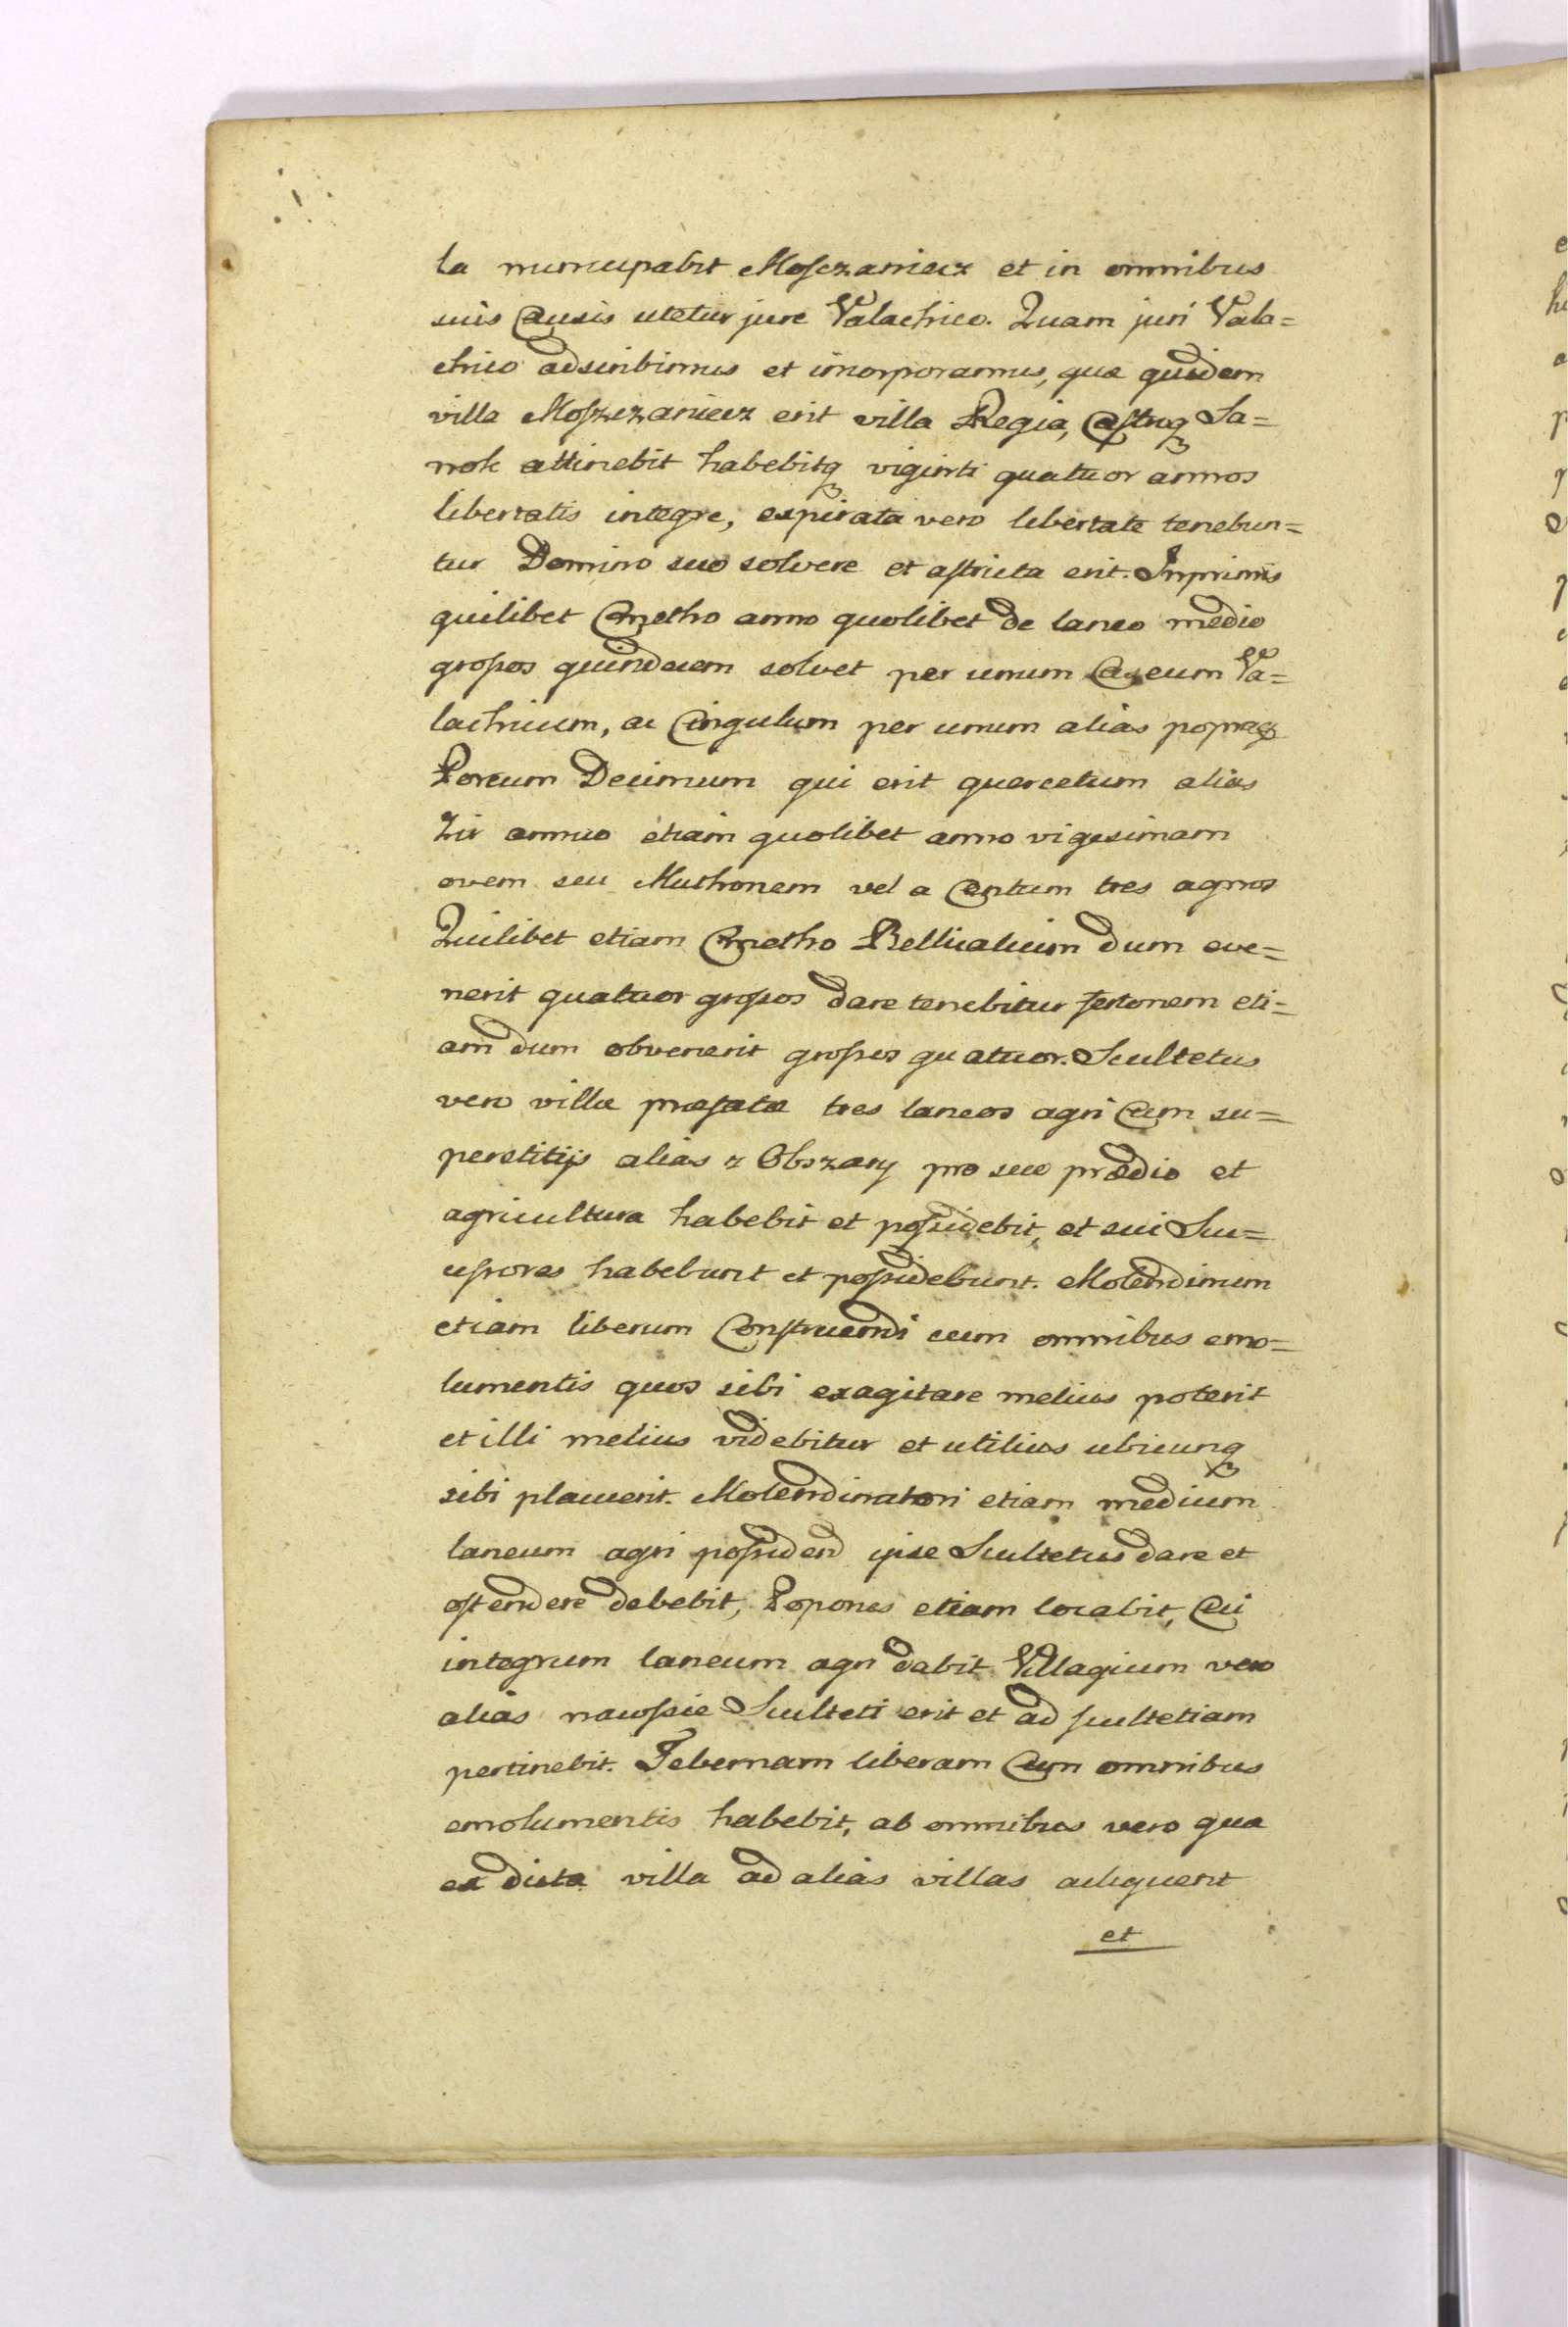 la nuncupabit Mosczaniecz et in omnibus
suis Causis utetur jure Valachico. Quam juri Vala=
chico adscribimus et incorporamus, quæ quidem
villa Moszczaniecz erit villa Regia, Castroq Sa=
nok attinebit habebitq viginti quatuor annos
libertatis integre, expirata vero libertate tenebun=
tur Domino suo solvere et astricta erit. Inprimis
quilibet Cmetho anno quolibet de laneo medio
grossos quindecem solvet per unum Caseum Va=
lachicum, ac Cingulum per unum alias poprag
Porcum Decimum qui erit quercetum alias
Zir annuo etiam quolibet anno vigesimam
ovem seu Muthonem vel a Centum tres agnos
Quilibet etiam Cmetho Bellicalium dum eve=
nerit quatuor grossos dare tenebitur fertonem eti=
am dum obvenerit grossos quatuor. Scultetus
vero villæ præfatæ tres laneos agri Cum su=
peretitijs alias z Obszary pro suo prædio et
agricultura habebit et possidebit, et sui Suc=
cessores habebunt et possidebunt. Molendinum
etiam liberum Construendi cum omnibus emo=
lumentis quos sibi exagitare melius poterit
et illi melius videbitur et utilius ubicunq
sibi placuerit. Molendinatori etiam medium
laneum agri possidend ipse Scultetus dare et
ostendere debebit, Popones etiam locabit, Cui
integrum laneum agri dabit Villagium vero
alias nawssie Sculteti erit et ad scultetiam
pertinebit. Tabernam liberam Cum omnibus
emolumentis habebit, ab omnibus vero qua
ex dicta villa ad alias villas
et